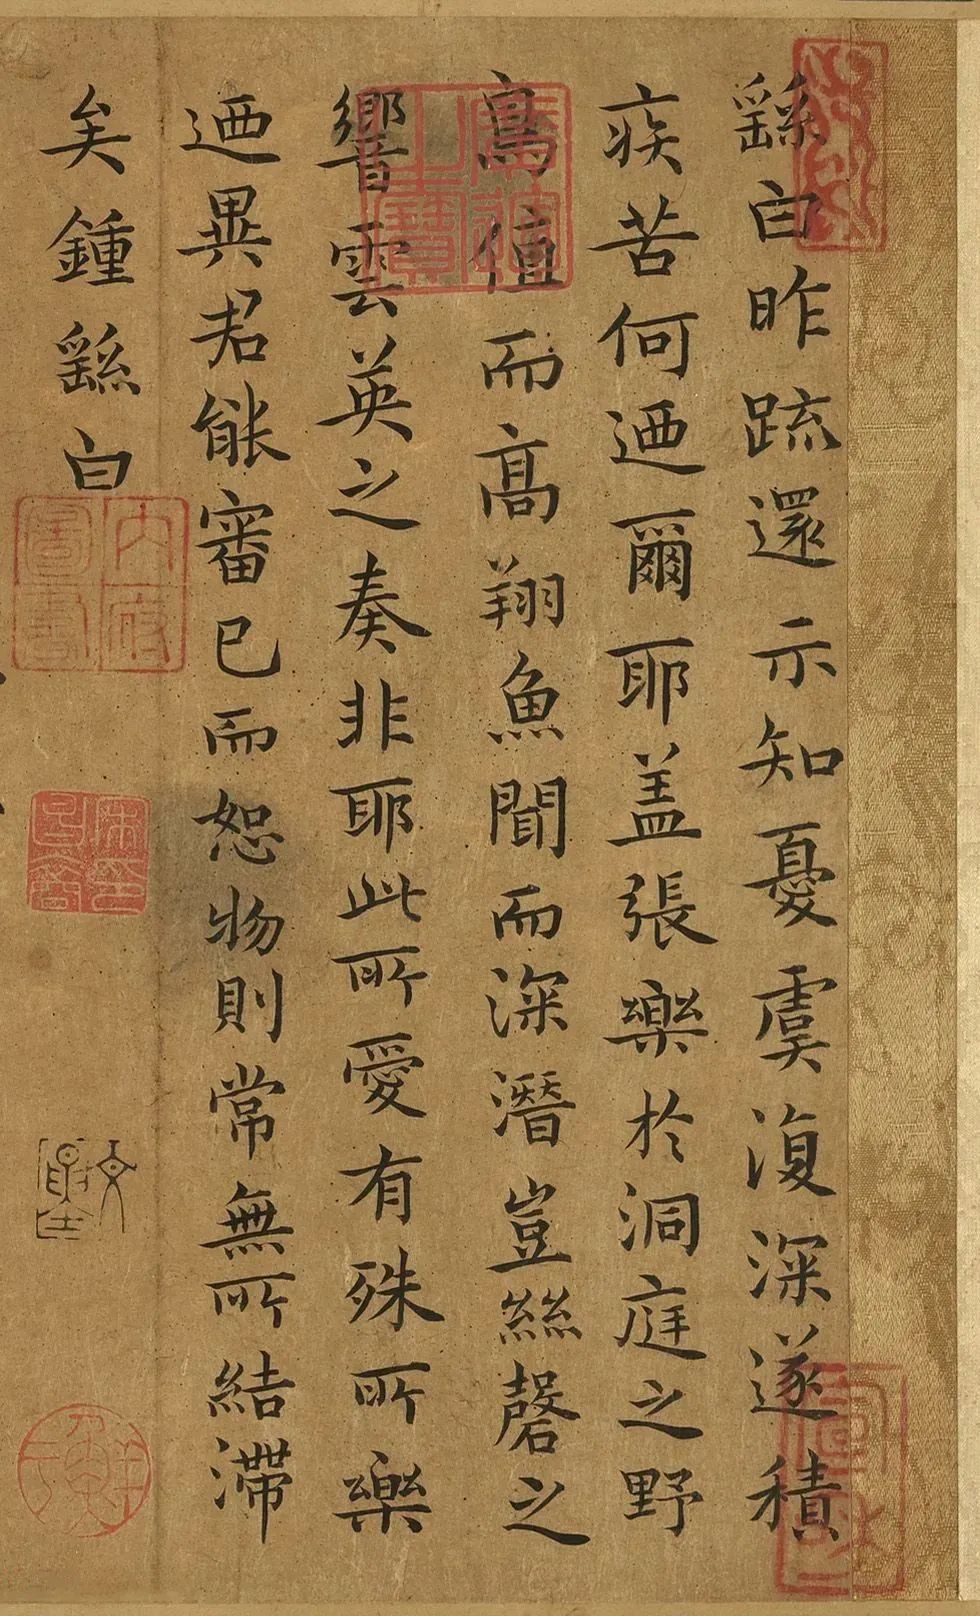 繇白昨疏還示知憂虞復深遂積
疾苦何迺爾耶盖張樂於洞庭之野
鳥值而高翔魚聞而深潛豈絲磬之
響雲英之奏非耶此所愛有殊所樂
迺異君能審己而恕物則常無所結滯
矣鍾繇白
內府
圖書